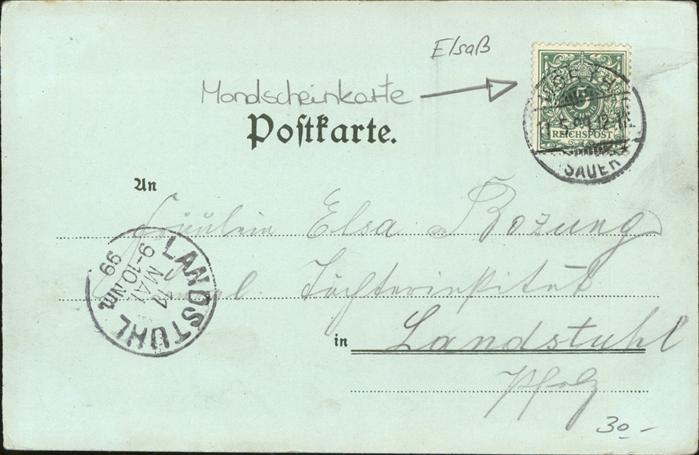 Elsaß
Mondscheinkarte
Postkarte.
5
REICHSPOST
SAUER
An
Fräulein Elsa Bozung
Töchterinstitut
in Landstuhl
Pfalz
LANDSTUHL
11
MAI
9-10 Nm.
99
30-